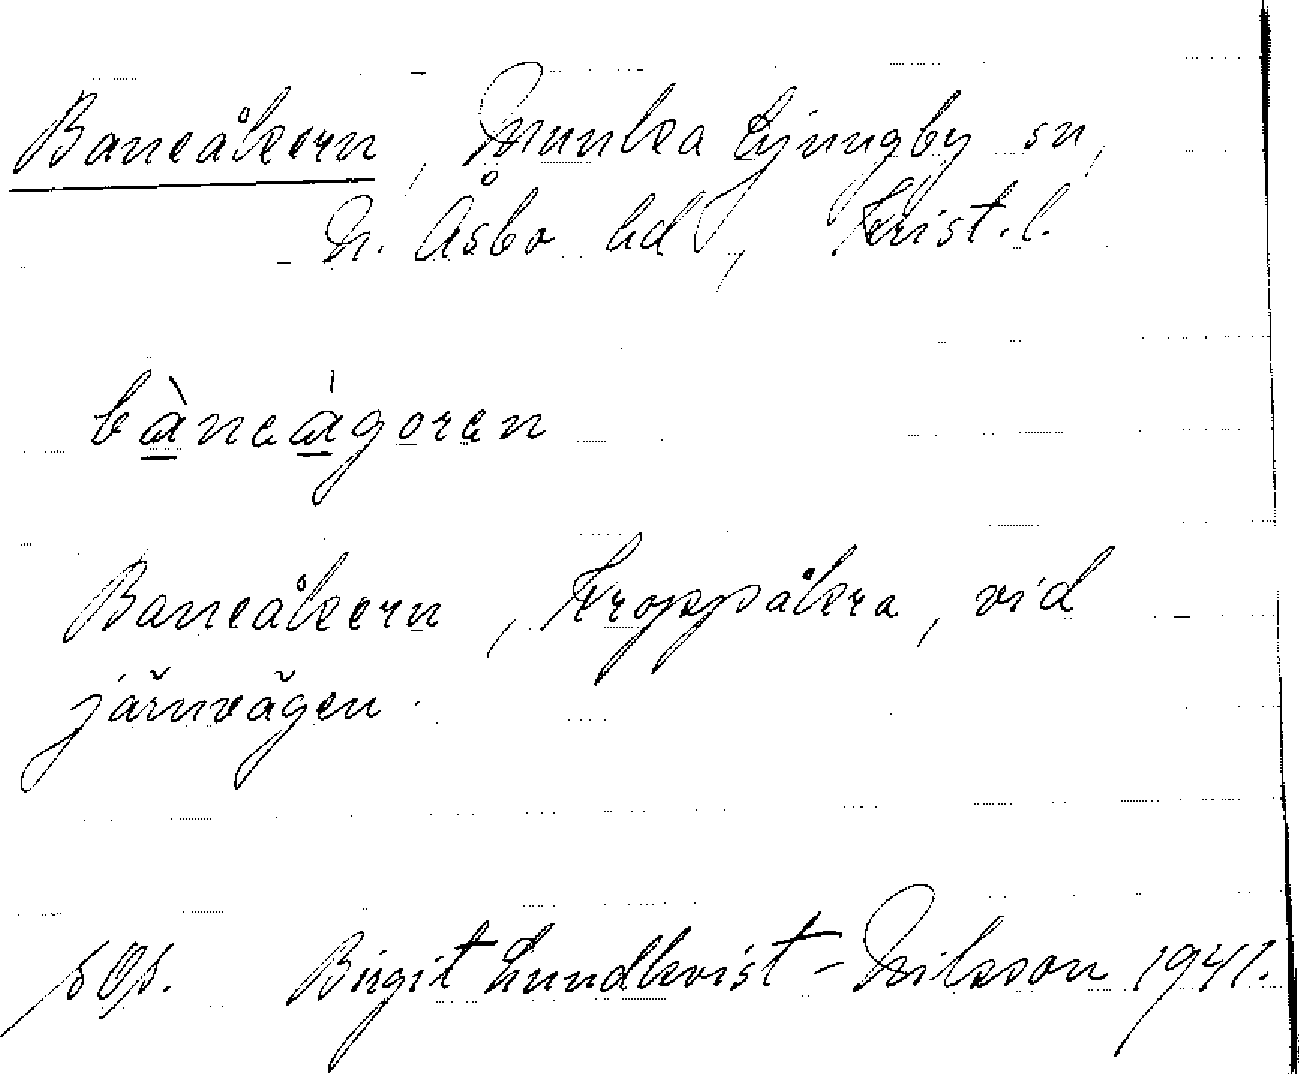 Baneåkern, Munka Ljungby sn,
N. Åsbo hd, Krist. l.
bàneágoren
Baneåkern, Kroppåkra, vid
järnvägen.
Birgit Lundkvist-Nilsson 1941.